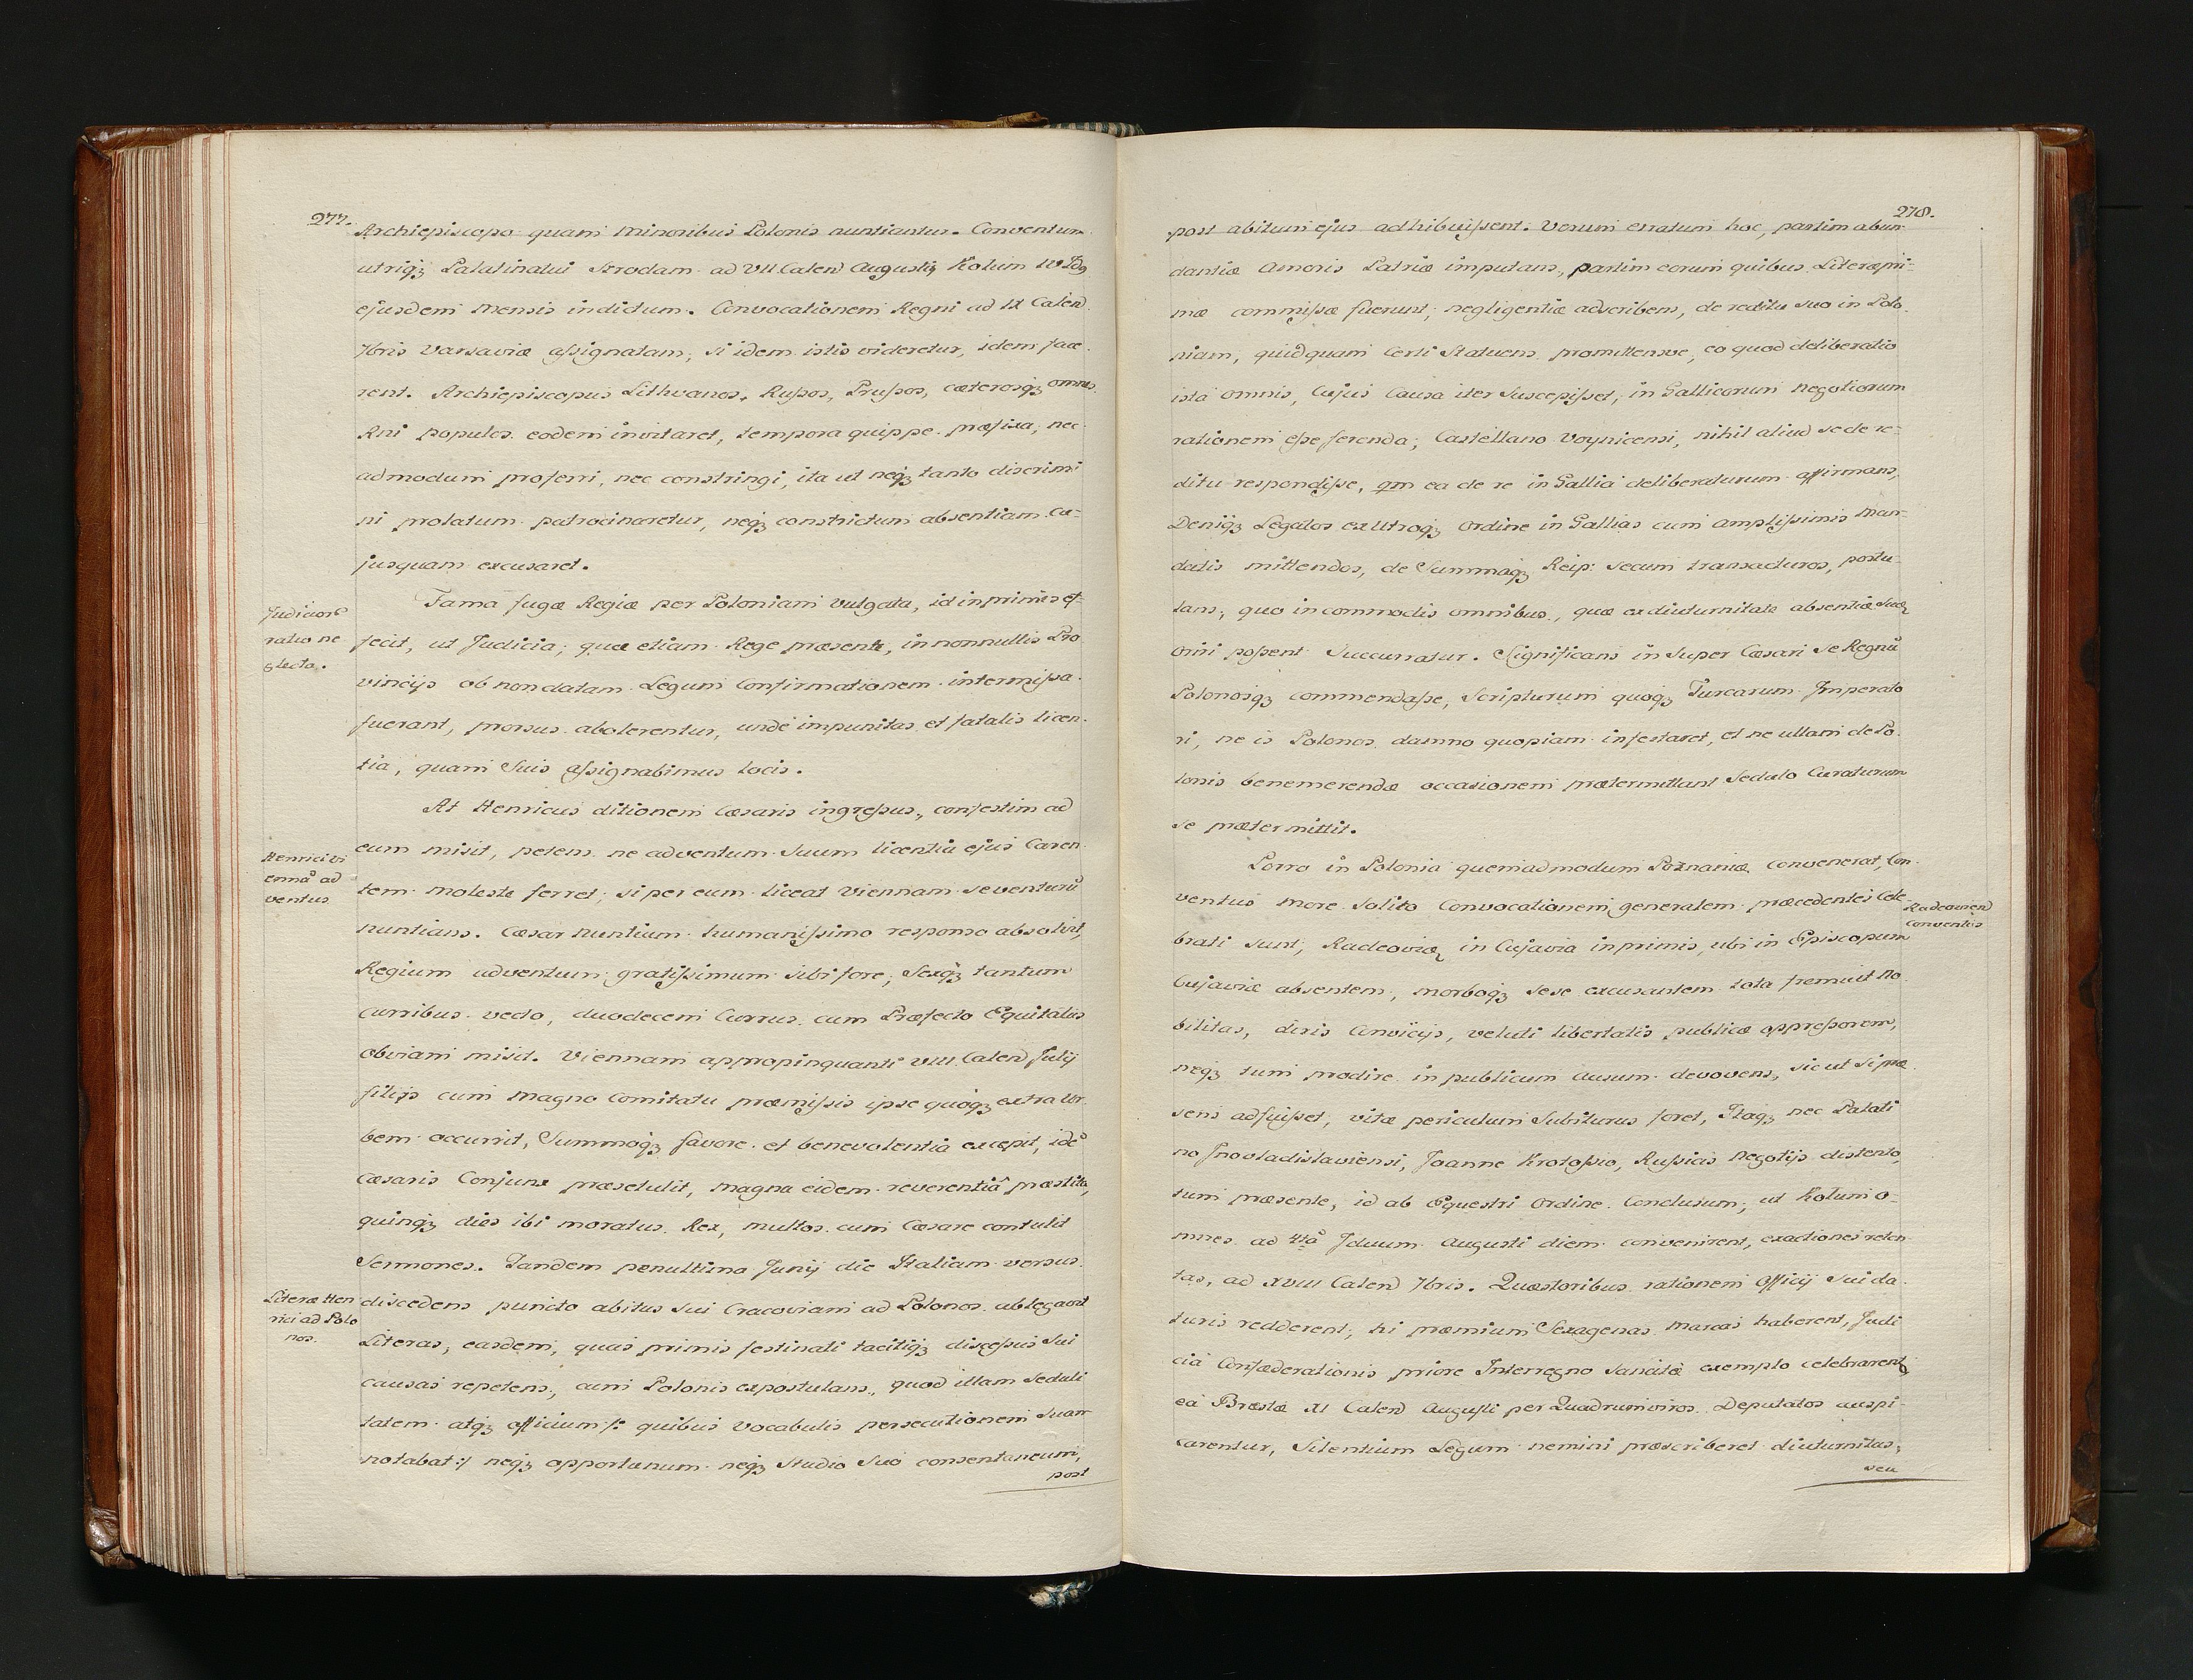 277.
Archiepiscopo quam Minoribus Polonis nuntiantur. Conventum
utriqꝫ Palatinatui Strodam ad VII. Calend Augusti, Kolum IV Idg
ejusdem Mensis indictum. Convocationem Regni ad IX Calend
7bris Varsaviæ assignatam, si idem istis videretur, idem face-
rent. Archiepiscopus Lithvanos, Russos, Prussos, cæterosqꝫ omnes
Rni populos eodem invitaret, tempora quippe præfixa, nec
admodum proferri, nec constringi, ita ut neqꝫ tanto discrimi
ni prolatum patrocinaretur, neqꝫ constrictum absentiam cu-
jusquam excusaret.
Judicior
ratio ne
glecta.
Fama fugæ Regiæ per Poloniam vulgata, id inprimis ef-
fecit, ut Judicia, quæ etiam Rege præsente, in nonnullis Pro
vincijs ob non datam Legum Confirmationem intermissa
fuerant, prorsus abolerentur, unde impunitas et fatalis licen-
tia, quam Suis assignabimus locis.
At Henricus ditionem Cæsaris ingressus, confestim ad
Henrici Vi
enna ad
ventus
eum misit, petens ne adventum Suum licentia ejus Caren
tem moleste ferret; si per eum liceat Viennam se venturu
nuntians. Cæsar Nuntium humanissimo responso absolvit,
Regium adventum gratissimum sibi fore, Sexqꝫ tantum
curribus vecto, duodecem Currus cum Præfecto Equitatus
obviam misit. Viennam appropinquanti VIII Calend Julij
filijs cum Magno Comitatu præmissis ipse quoqꝫ extra Ur-
bem occurrit, Summoqꝫ favore et benevolentia excepit, ide
Cæsaris Conjunx præsetulit, magna eidem reverentia præstita,
quinqꝫ dies ibi moratus Rex, multos cum Cæsare contulit
Sermones. Tandem penultima Junij die Italiam versus
Literæ Hen
rici ad Polo
nos.
discedens puncto abitus sui Cracoviam ad Polonos ablegavit
Literas, easdem, quas primis festinati tacitiqꝫ discessus Sui
causas repetens, cum Polonis expostulans, quod illam Seduli
tatem atqꝫ officium /: quibus Vocabulis persecutionem Suam
notabat :/ neqꝫ opportunum neqꝫ Studio Suo consentaneum,
post
278.
post abitum ejus adhibuissent. Verum erratum hoc, partim abun
dantiæ Amoris Patriæ imputans, partim eorum quibus Literæ pri-
mæ commissæ fuerunt, negligentiæ adscribens, de reditu suo in Polo
niam, quidquam Certi Statuens promittensve, eo quod deliberatio
ista omnis, Cujus Causa iter Suscepisset, in Gallicorum Negotiorum
rationem esse ferenda; Castellano Voynicensi, nihil aliud se de re-
ditu respondisse, qm ea de re in Gallia deliberaturum affirmans,
Deniqꝫ Legatos ex Utroqꝫ Ordine in Gallias cum amplissimis Man-
datis mittendos, de Summaqꝫ Reip: secum transacturos, postu-
lans, quo incommodis omnibus, quæ ex diuturnitate absentiæ suæ
oriri possent Succurratur. Significans in Super Cæsari Se Regnu
Polonosqꝫ commendasse, Scripturum quoqꝫ Turcarum Imperato
ri, ne is Polonos damno quopiam infestaret, et ne ullam de Po
lonis benemerendæ occasionem prætermittant Sedulo Curaturum
se prætermittit.
Porro in Polonia quemadmodum Poznaniæ Convenerat, Con-
ventus more Solito Convocationem generalem præcedentes Cele
Radeovien
Conventus
brati sunt, Radeoviæ in Cujavia inprimis, ubi in Episcopum
Cujaviæ absentem, morboqꝫ sese excusantem tota fremuit No
bilitas, diris Convicijs, veluti libertatis publicæ oppressorem,
neqꝫ tum prodire in publicum Ausum devovens, sic ut Si præ
sens adfuisset, vitæ periculum Subiturus foret, Itaqꝫ nec Palati
no Jnovladislaviensi, Joanne Krotossio, Russicis Negotijs distento,
tum præsente, id ab Equestri Ordine Conclusum, ut Kolum o-
mnes ad 4ta Iduum Augusti diem convenirent, exactiones reten
tas, ad XVIII Calend 7bris. Quæstoribus rationem Officij Sui da-
turis redderent, hi præmium Sexagenas Marcas haberent, Judi
cia Confæderationis priore Interregno Sancitæ exemplo celebrarent,
ea Brestæ XI Calend Augusti per Quadrumviros Deputatos auspi-
carentur, Silentium Legum nemini præscriberet diuturnitas,
seu